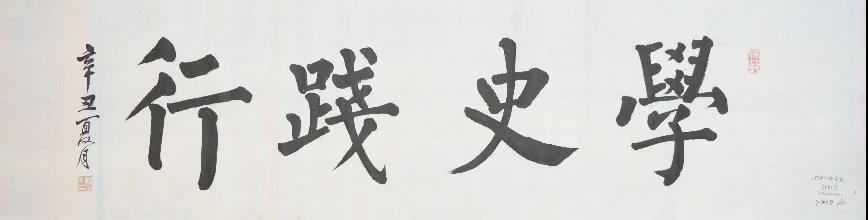 學史踐行
辛丑夏月